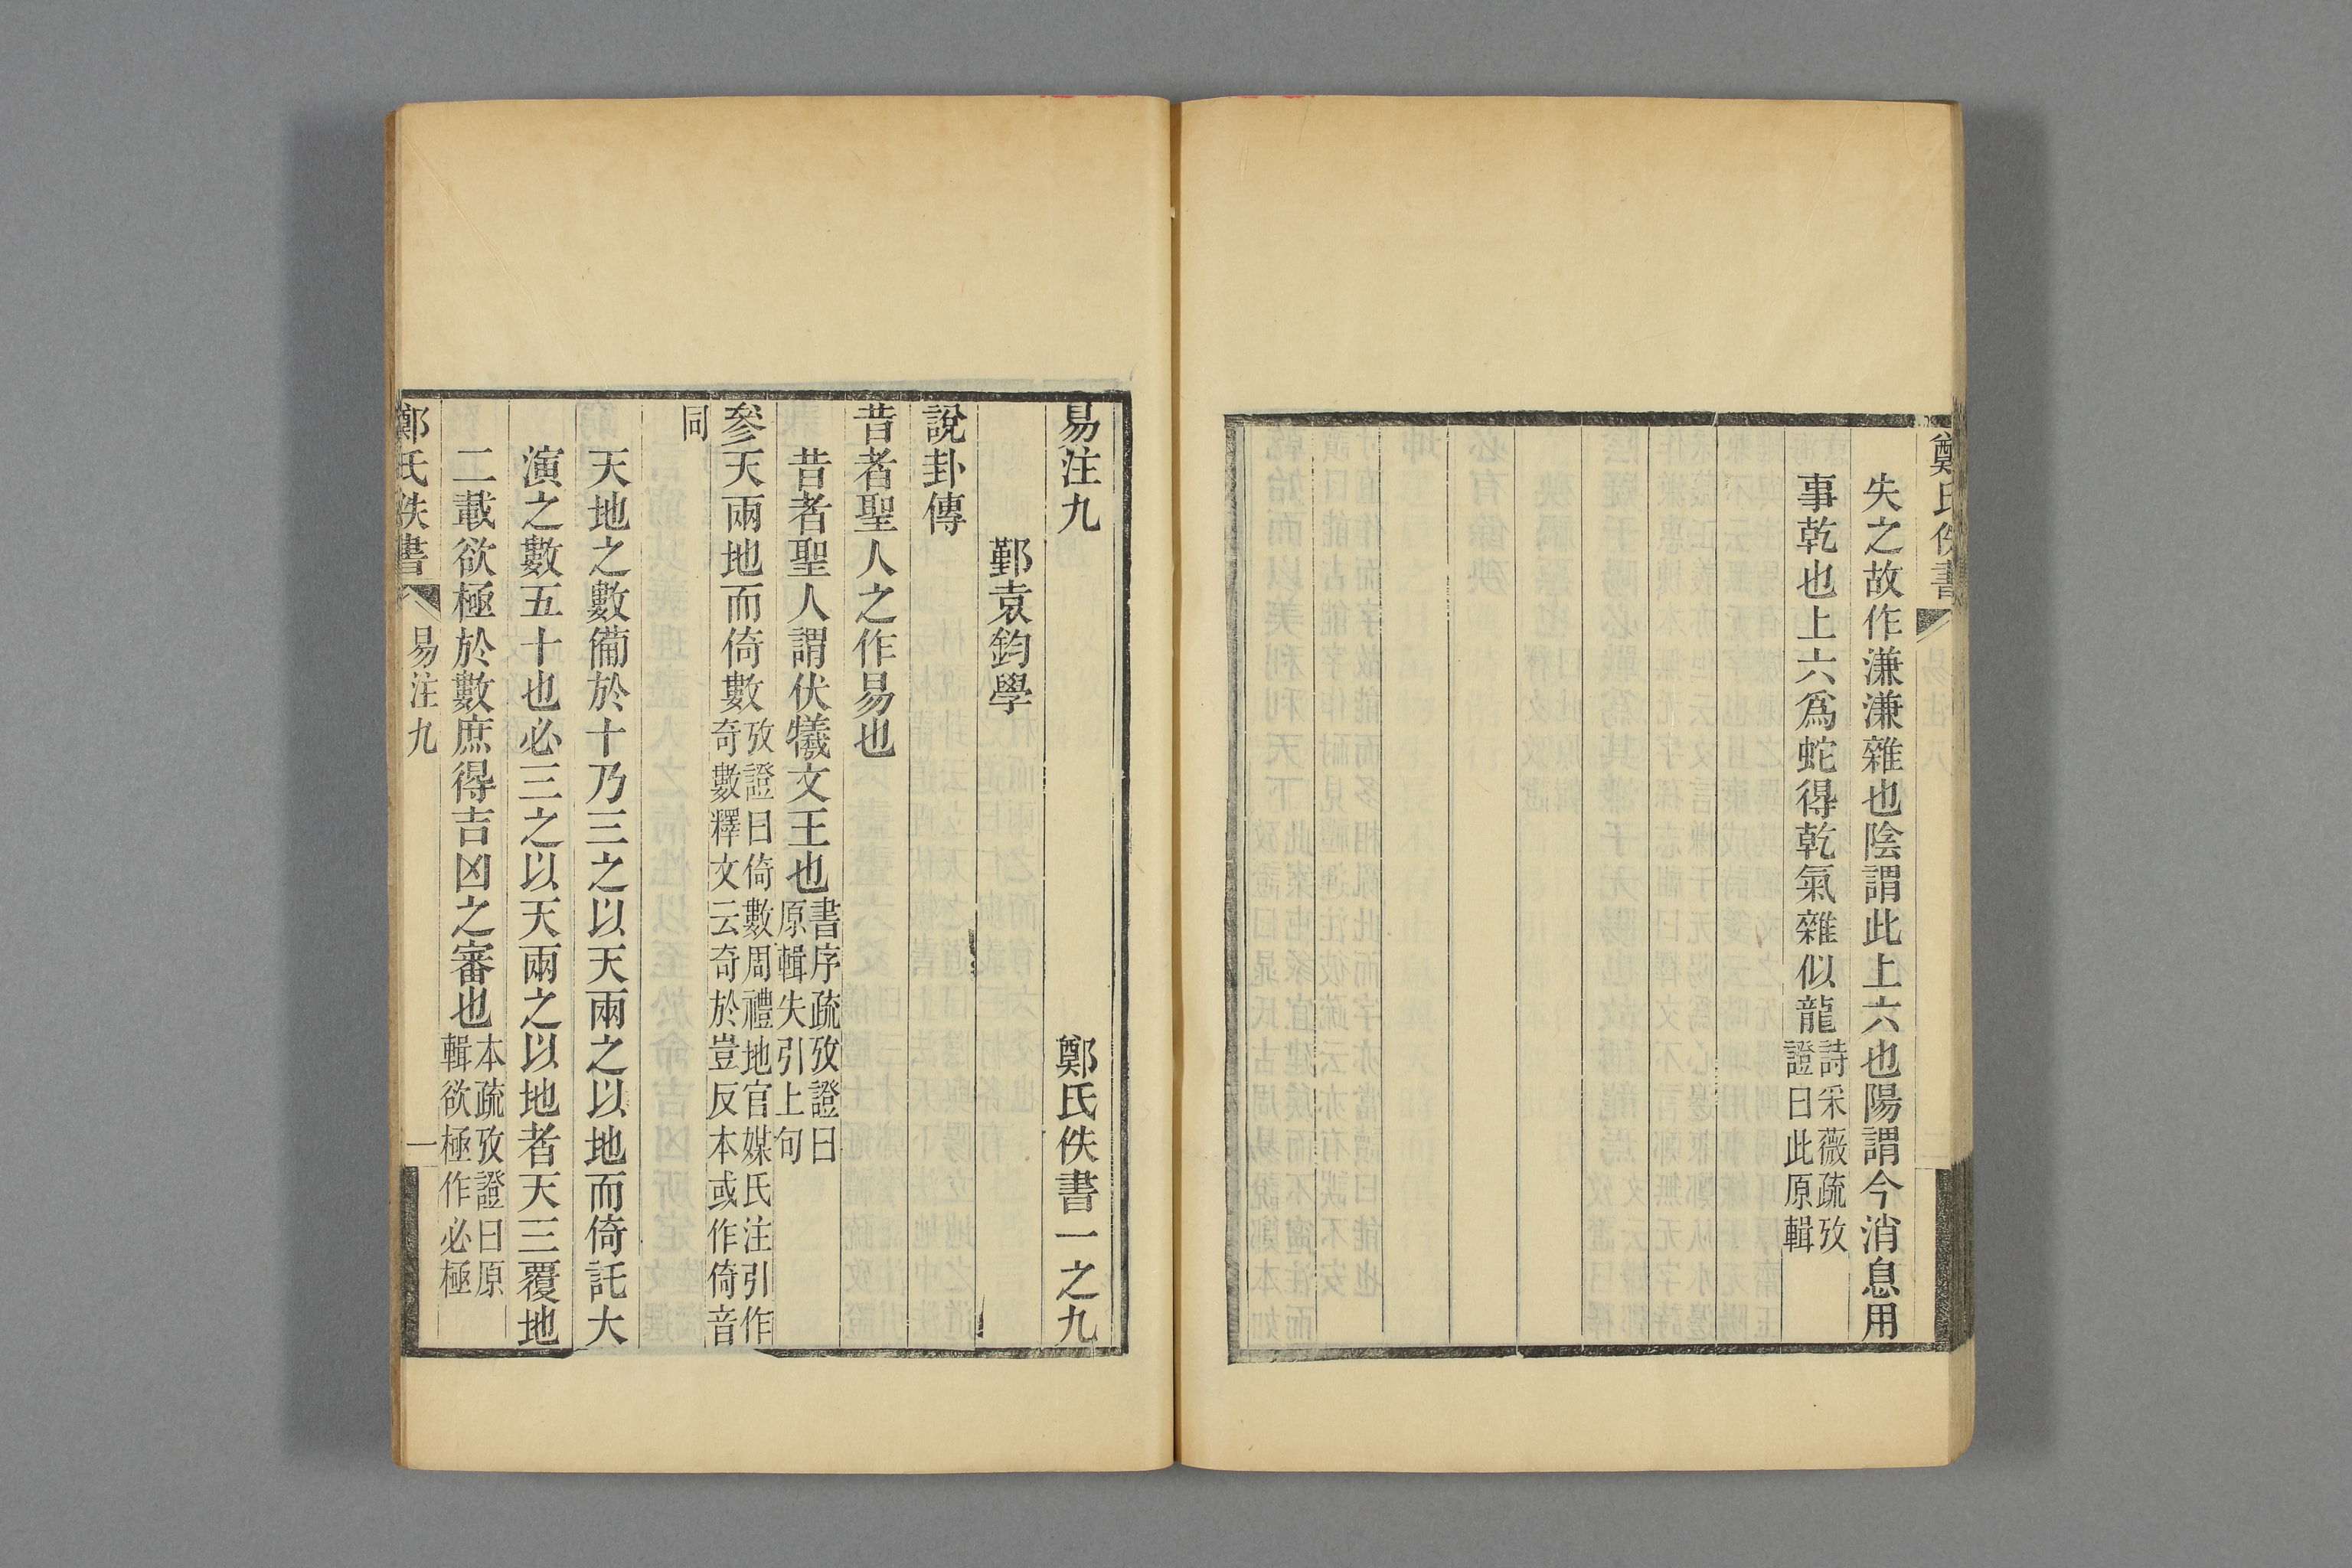 鄭氏佚書
失之故作溓溓雜也陰謂此上六也陽謂今消息用
事乾也上六爲蛇得乾氣雜似龍
詩采薇疏攷
證曰此原輯
易注九 鄭氏佚書一之九
鄞袁鈞學
說卦傳
昔者聖人之作易也
昔者聖人謂伏犧文王也
書序疏攷證曰
原輯失引上句
參天兩地而倚數
攷證曰倚數周禮地官媒氏注引作
奇數釋文云奇於豈反本或作倚音
同
天地之數備於十乃三之以天兩之以地而倚託大
演之數五十也必三之以天兩之以地者天三覆地
二載欲極於數庶得吉凶之審也
本疏攷證曰原
輯欲極作必極
鄭氏佚書 易注九 一